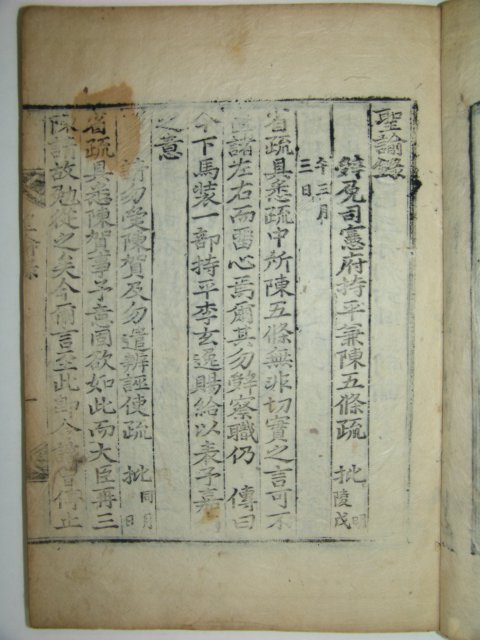 聖諭錄
辭免司憲府持平兼陳五條疏 批 明陵戊
午三月三日
省疏具悉疏中所陳五條無非切實之言可不
置諸左右而留心焉爾其勿辭察職仍 傳曰
今下馬裝一部持平李玄逸賜給以表予嘉
之意
請勿受陳賀及勿遣辨誣使疏 批 同月日
省疏具悉陳賀事予意固欲如此而大臣再三
陳請故勉從之矣今爾言至此即令曹停止